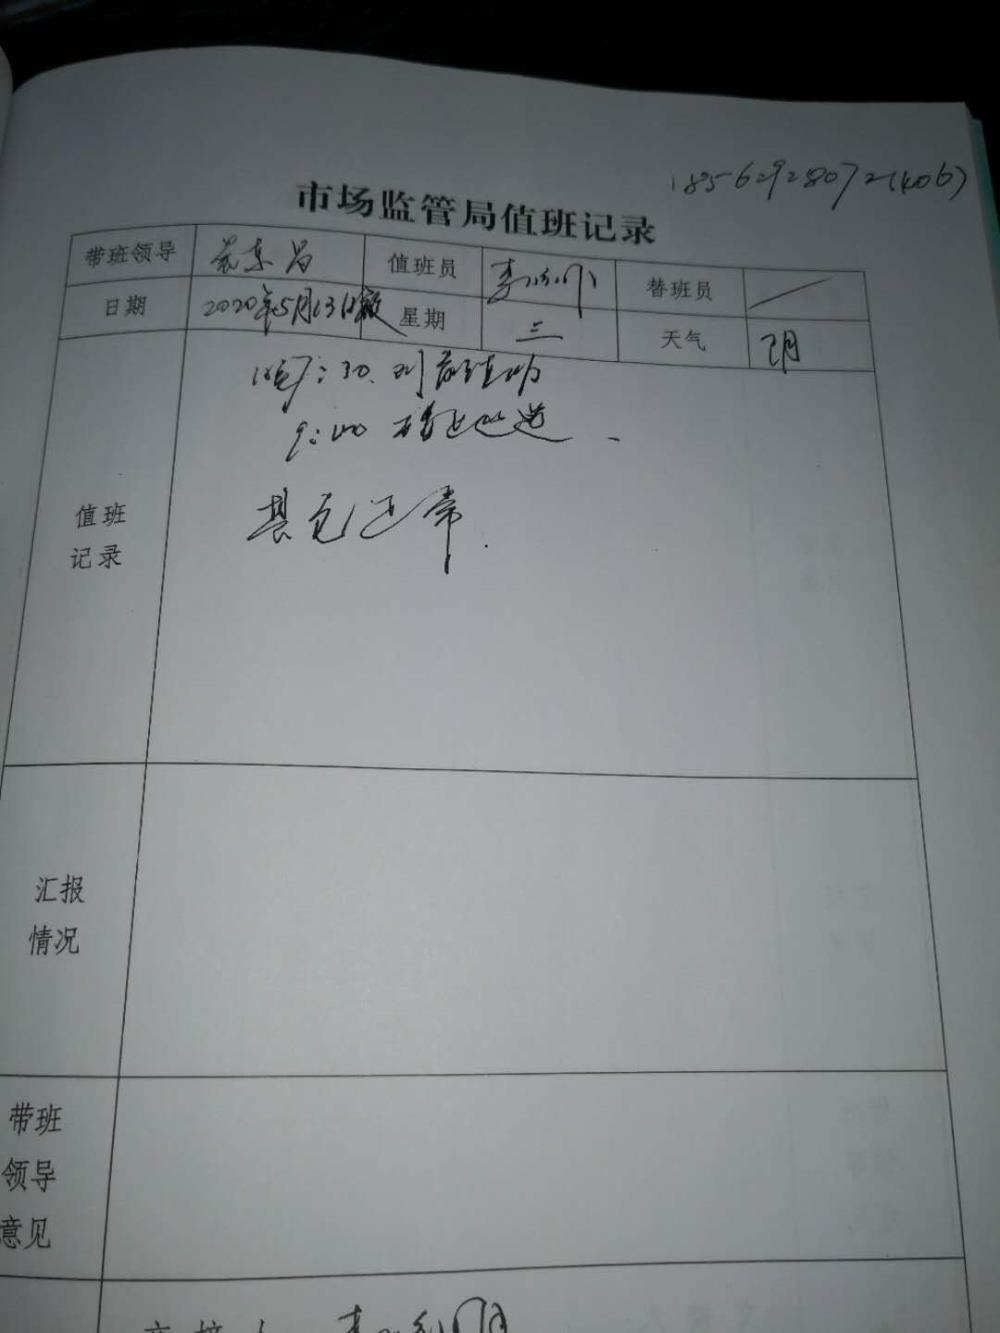 18562928072(406)
市场监管局值班记录
带班领导 袁东昌 值班员 替班员 /
日期 2020年5月13日夜 星期 三 天气 阴
晚7:30.到岗值班
9:00
其它正常.
值班
记录
汇报
情况
带班
领导
意见